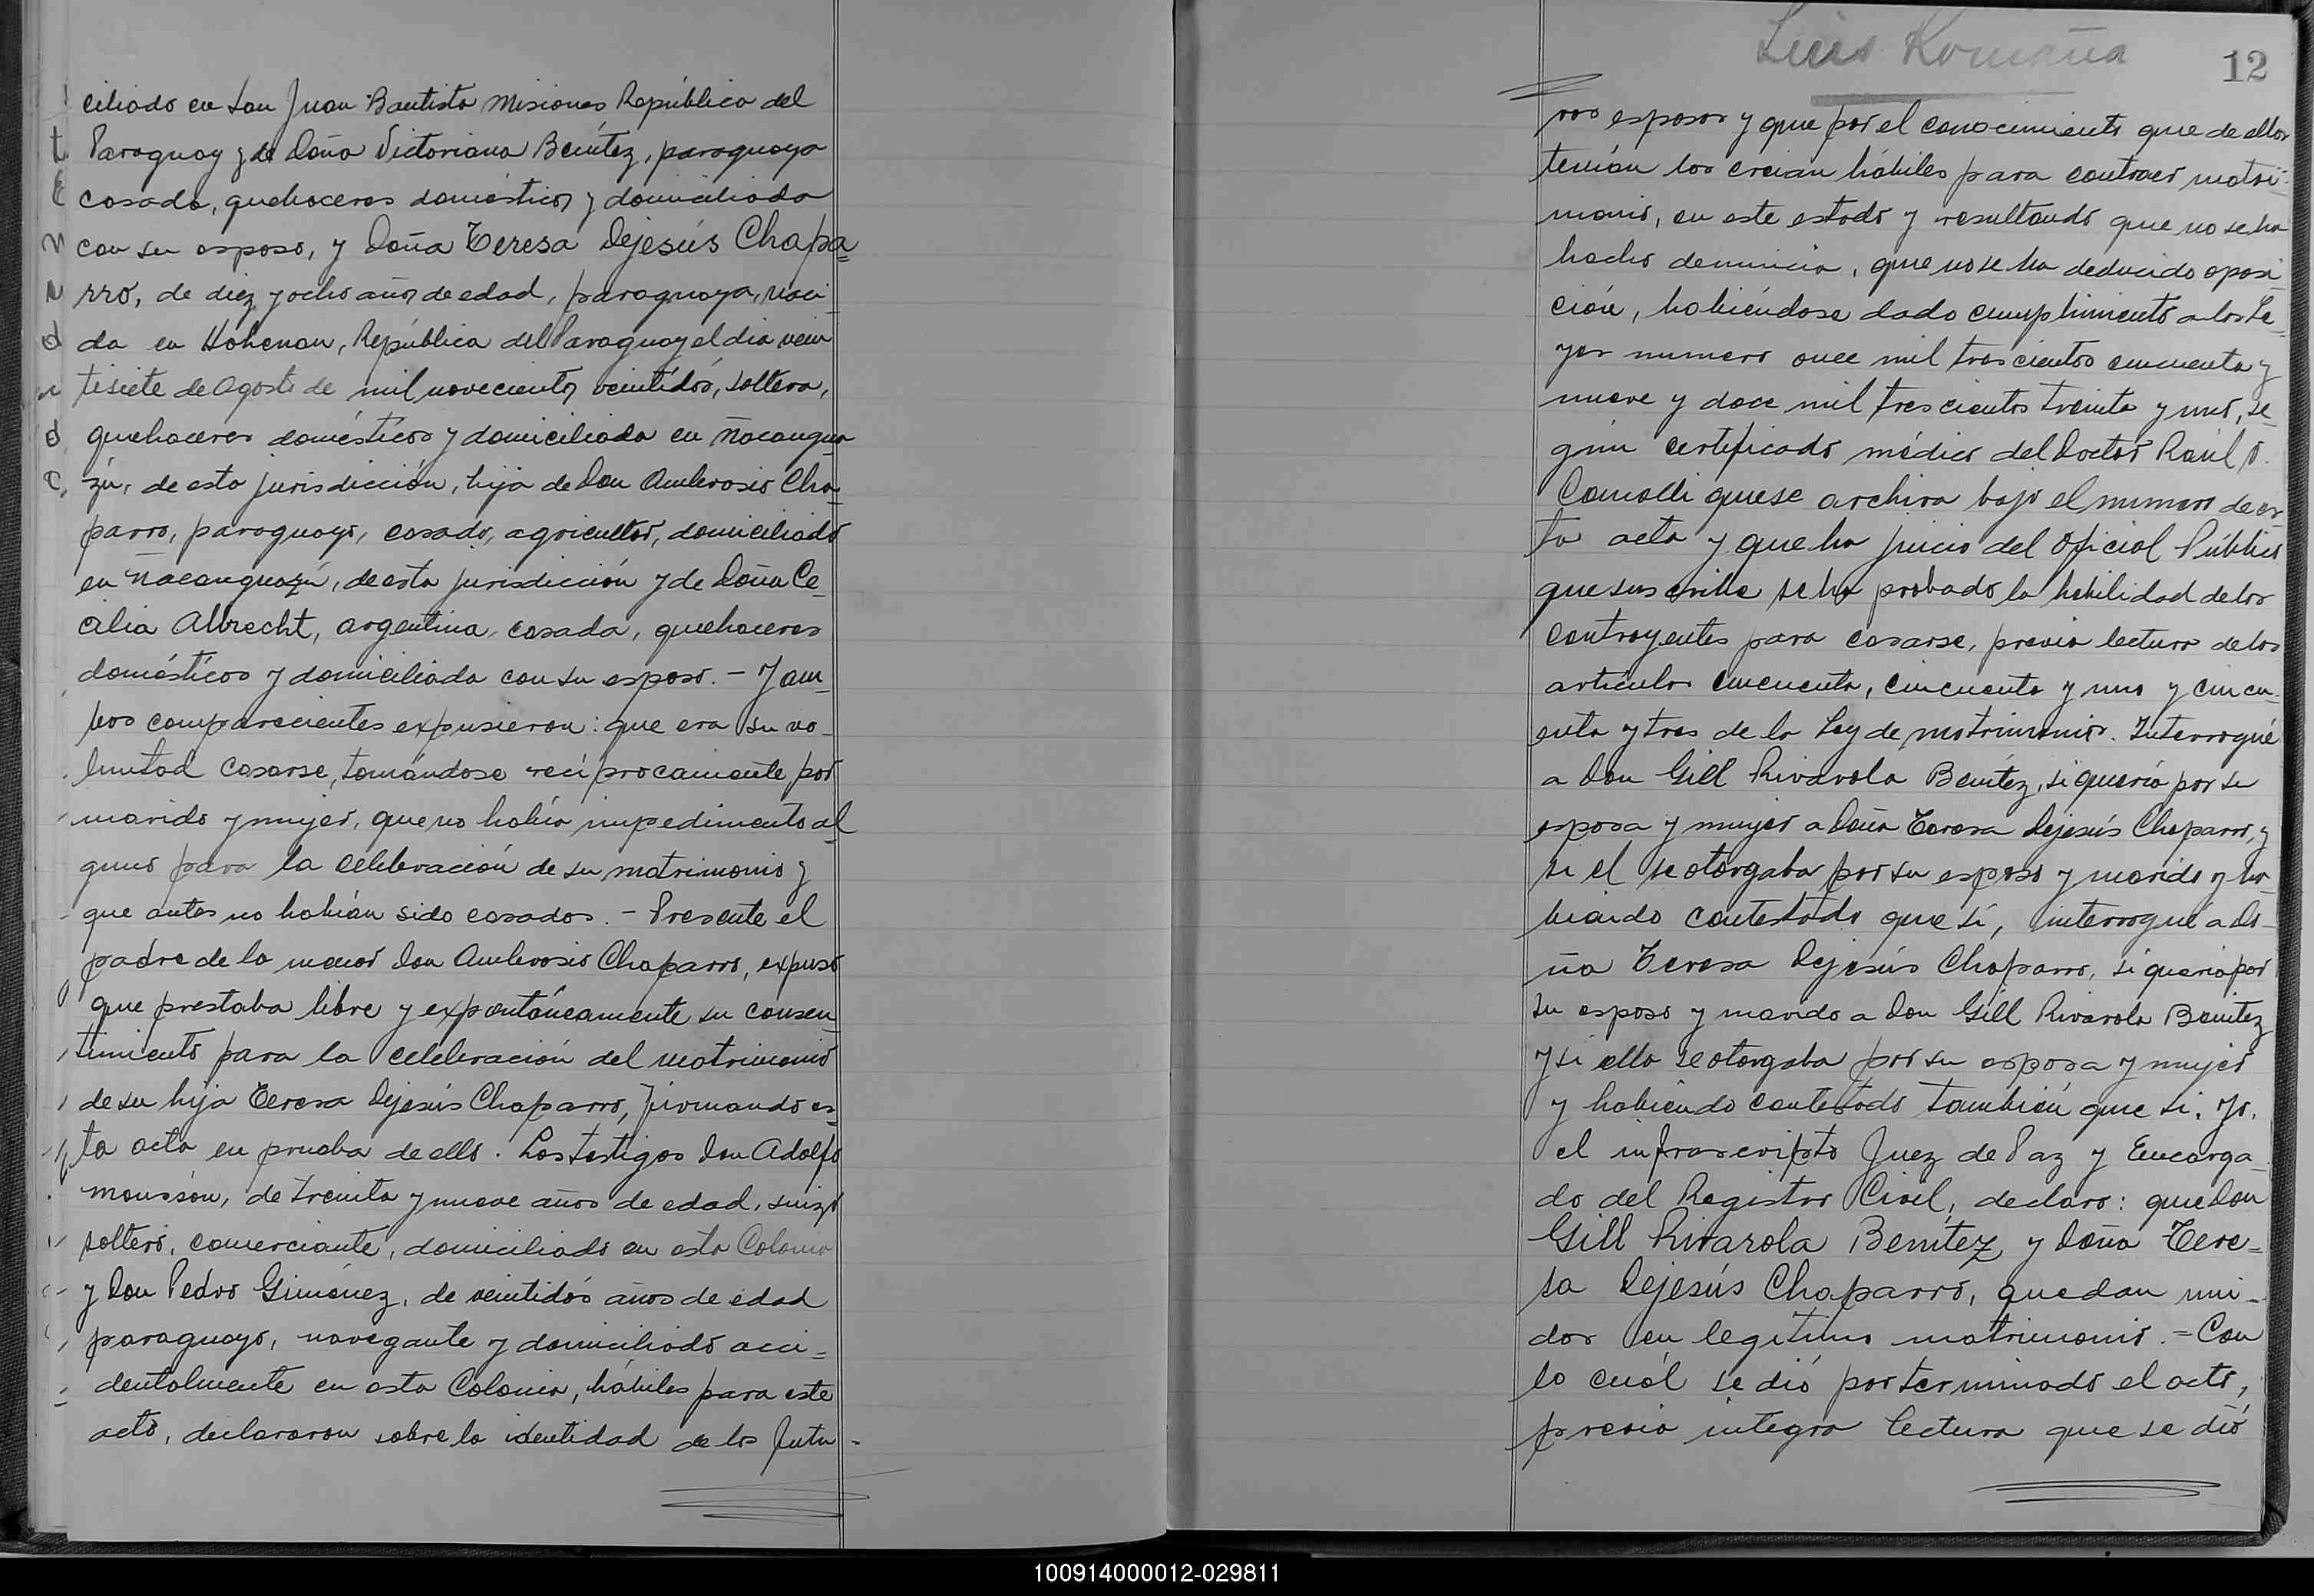 ciliado en San Juan Bautista Misiones República del
Paraguay y de Doña Victoriana Benítez, paraguaya
casada, quehaceres domésticos y domiciliada
con su esposo, y Doña Teresa Dejesús Chapa=
rro, de diez y ocho años de edad, paraguaya, naci-
da en Hohenau, República del Paraguay el dia vein
tisiete de Agosto de mil novecientos veintidós, soltera,
quehaceres domésticos y domiciliada en Ñacangua
zú, de esta jurisdicción, hija de Don Ambrosio Cha-
parro, paraguayo, casado, agricultor, domiciliado
en Ñacanguazú, de esta jurisdicción y de Doña Ce-
cilia Albrecht, argentina, casada, quehaceres
domésticos y domiciliada con su esposo. - Y am-
bos comparecientes expusieron: que era su vo-
luntad casarse, tomándose recíprocamente por
marido y mujer, que no había impedimento al
guno para la celebración de su matrimonio y
que antes no habían sido casados. - Presente el
padre de la menor Don Ambrosio Chaparro, expuso
que prestaba libre y expontáneamente su consen-
timiento para la celebración del matrimonio
de su hija Teresa Dejesús Chaparro, firmando es=
ta acta en prueba de ello. Los testigos Don Adolfo
Moussón, de treinta y nueve años de edad, suizo
soltero, comerciante, domiciliado en esta Colonia
y Don Pedro Giménez, de veintidós años de edad
paraguayo, navegante y domiciliado acci=
dentalmente en esta Colonia, hábiles para este
acto, declararon sobre la identidad de los futu-
Luis Romaña
12
ros esposos y que por el conocimiento que de ellos
tenían los creían hábiles para contraer matri-
monio, en este estado y resultando que no se ha
hecho denuncia, que no se ha deducido oposi
ción, habiéndose dado cumplimiento a los Le-
yes numero once mil trescientos cincuenta y
nueve y doce mil trescientos treinta y uno, se
gún certificado médico del Doctor Raúl O.
Comolli que se archiva bajo el numero de es-
ta acta y que ha juicio del Oficial Público
que suscribe se ha probado la habilidad de los
contrayentes para casarse, previa lectura de los
artículos cincuenta, cincuenta y uno y cincu-
enta y tres de la Ley de matrimonio. Interrogué
a Don Gill Rivarola Benítez, si quería por su
esposa y mujer a Doña Teresa Dejesús Chaparro, y
si el se otorgaba por su esposo y marido y ha-
biendo contestado que sí, interrogué a Do-
ña Teresa Dejesús Chaparro, si quería por
su esposo y marido a Don Gill Rivarola Benítez
y si ella se otorgaba por su esposa y mujer
y habiendo contestado también que si. Yo,
el infrascripto Juez de Paz y Encarga-
do del Registro Civil, declaro: que Don
Gill Rivarola Benítez y Doña Tere=
sa Dejesús Chaparro, quedan uni-
dos en legítimo matrimonio. = Con
lo cuál se dió por terminado el acto,
previa integra lectura que se dió
100914000012-029811